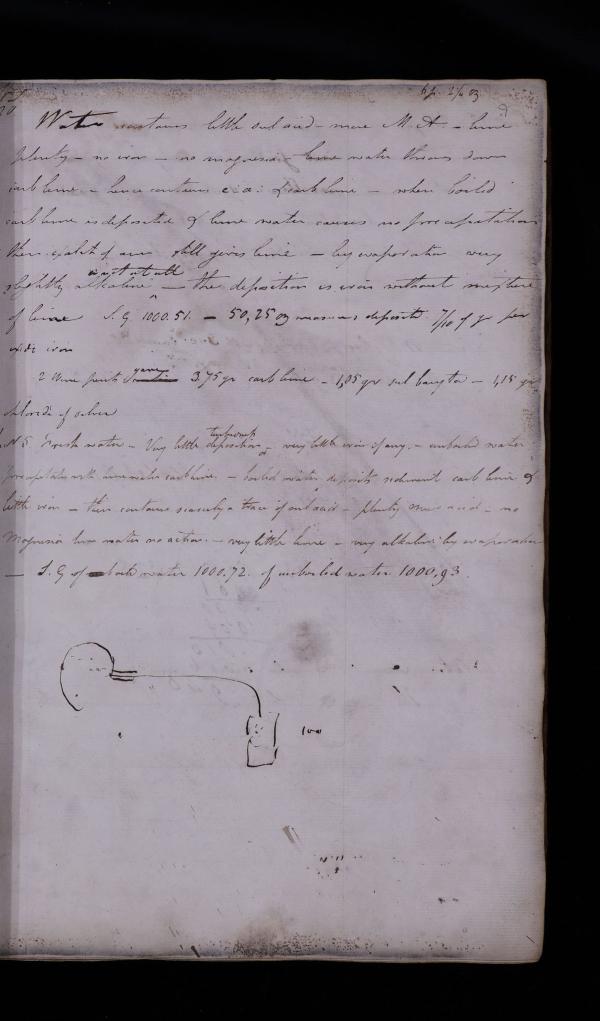 Water contains little sul acid - more M A - lime
plenty - no iron - no magnesia - lime water throws down
carb lime - hence contains c. a: & carb lime - when boiled
carb lime is deposited & lime water causes no precipitation
then oxalate of amm still gives lime - by evaporation very
slightly alkaline not at all - the deposition is iron without mixture
of lime S. G 1000.51. - 50,25 oz measures deposits 7/10 of gr per
oxide iron
2 wine pints gave 3,75 gr carb lime - 1,05 gr sul baryta - 1,15 gr
chloride of silver
N 5 Fresh water - Very little deposition - very little iron if any. - unboiled water
precipitates with lime water carb lime. - boiled water deposits sediment carb lime &
little iron - then contains scarcely a trace of sul acid - plenty mur acid - no
Magnesia lime water no action. - very little lime - very alkaline by evaporation
- S. G of water 1000.72. of unboiled water 1000,93
100